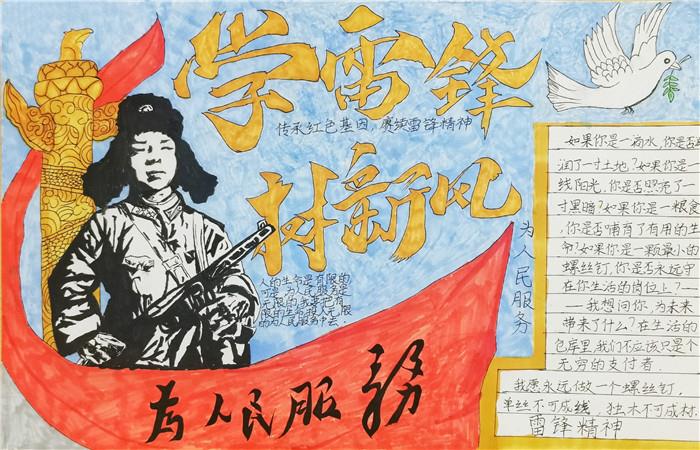 学雷锋
传承红色基因，赓续雷锋精神
树新风
为人民服务
人的生命是有限的
可是,为人民服务是
无限的,我要把有
限的生命,投入无限
的为人民服务中去.
为人民服务
如果你是一滴水,你是否滋
润了一寸土地?如果你是一
线阳光,你是否照亮了一
寸黑暗?如果你是一粮食
,你是否哺育了有用的生
命?如果你是一颗最小的
螺丝钉,你是否永远守
在你生活的岗位上?—
—我想问你,为未来
带来了什么?在生活的
仓库里,我们不应该只是个
无穷的支付者.
我愿永远做一个螺丝钉.
单丝不可成线，独木不可成林.
雷锋精神